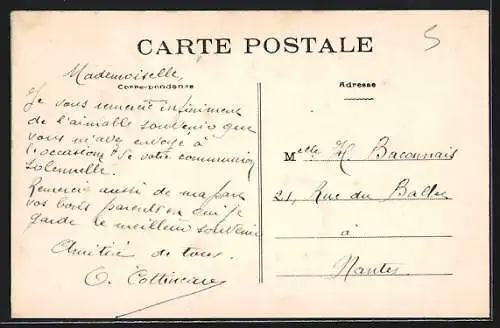 CARTE POSTALE
5
Mademoiselle,
Correspondance
Je vous remercie infiniment
de l'aimable souvenir que
vous m'avez envoyé à
l'occasion de votre communion
solennelle.
Remerciez aussi de ma part
vos bons parents
garde le meilleur souvenir
Amitiés de tous.
Adresse
Melle H. Baconnais
21, Rue du Ballet
à
Nantes